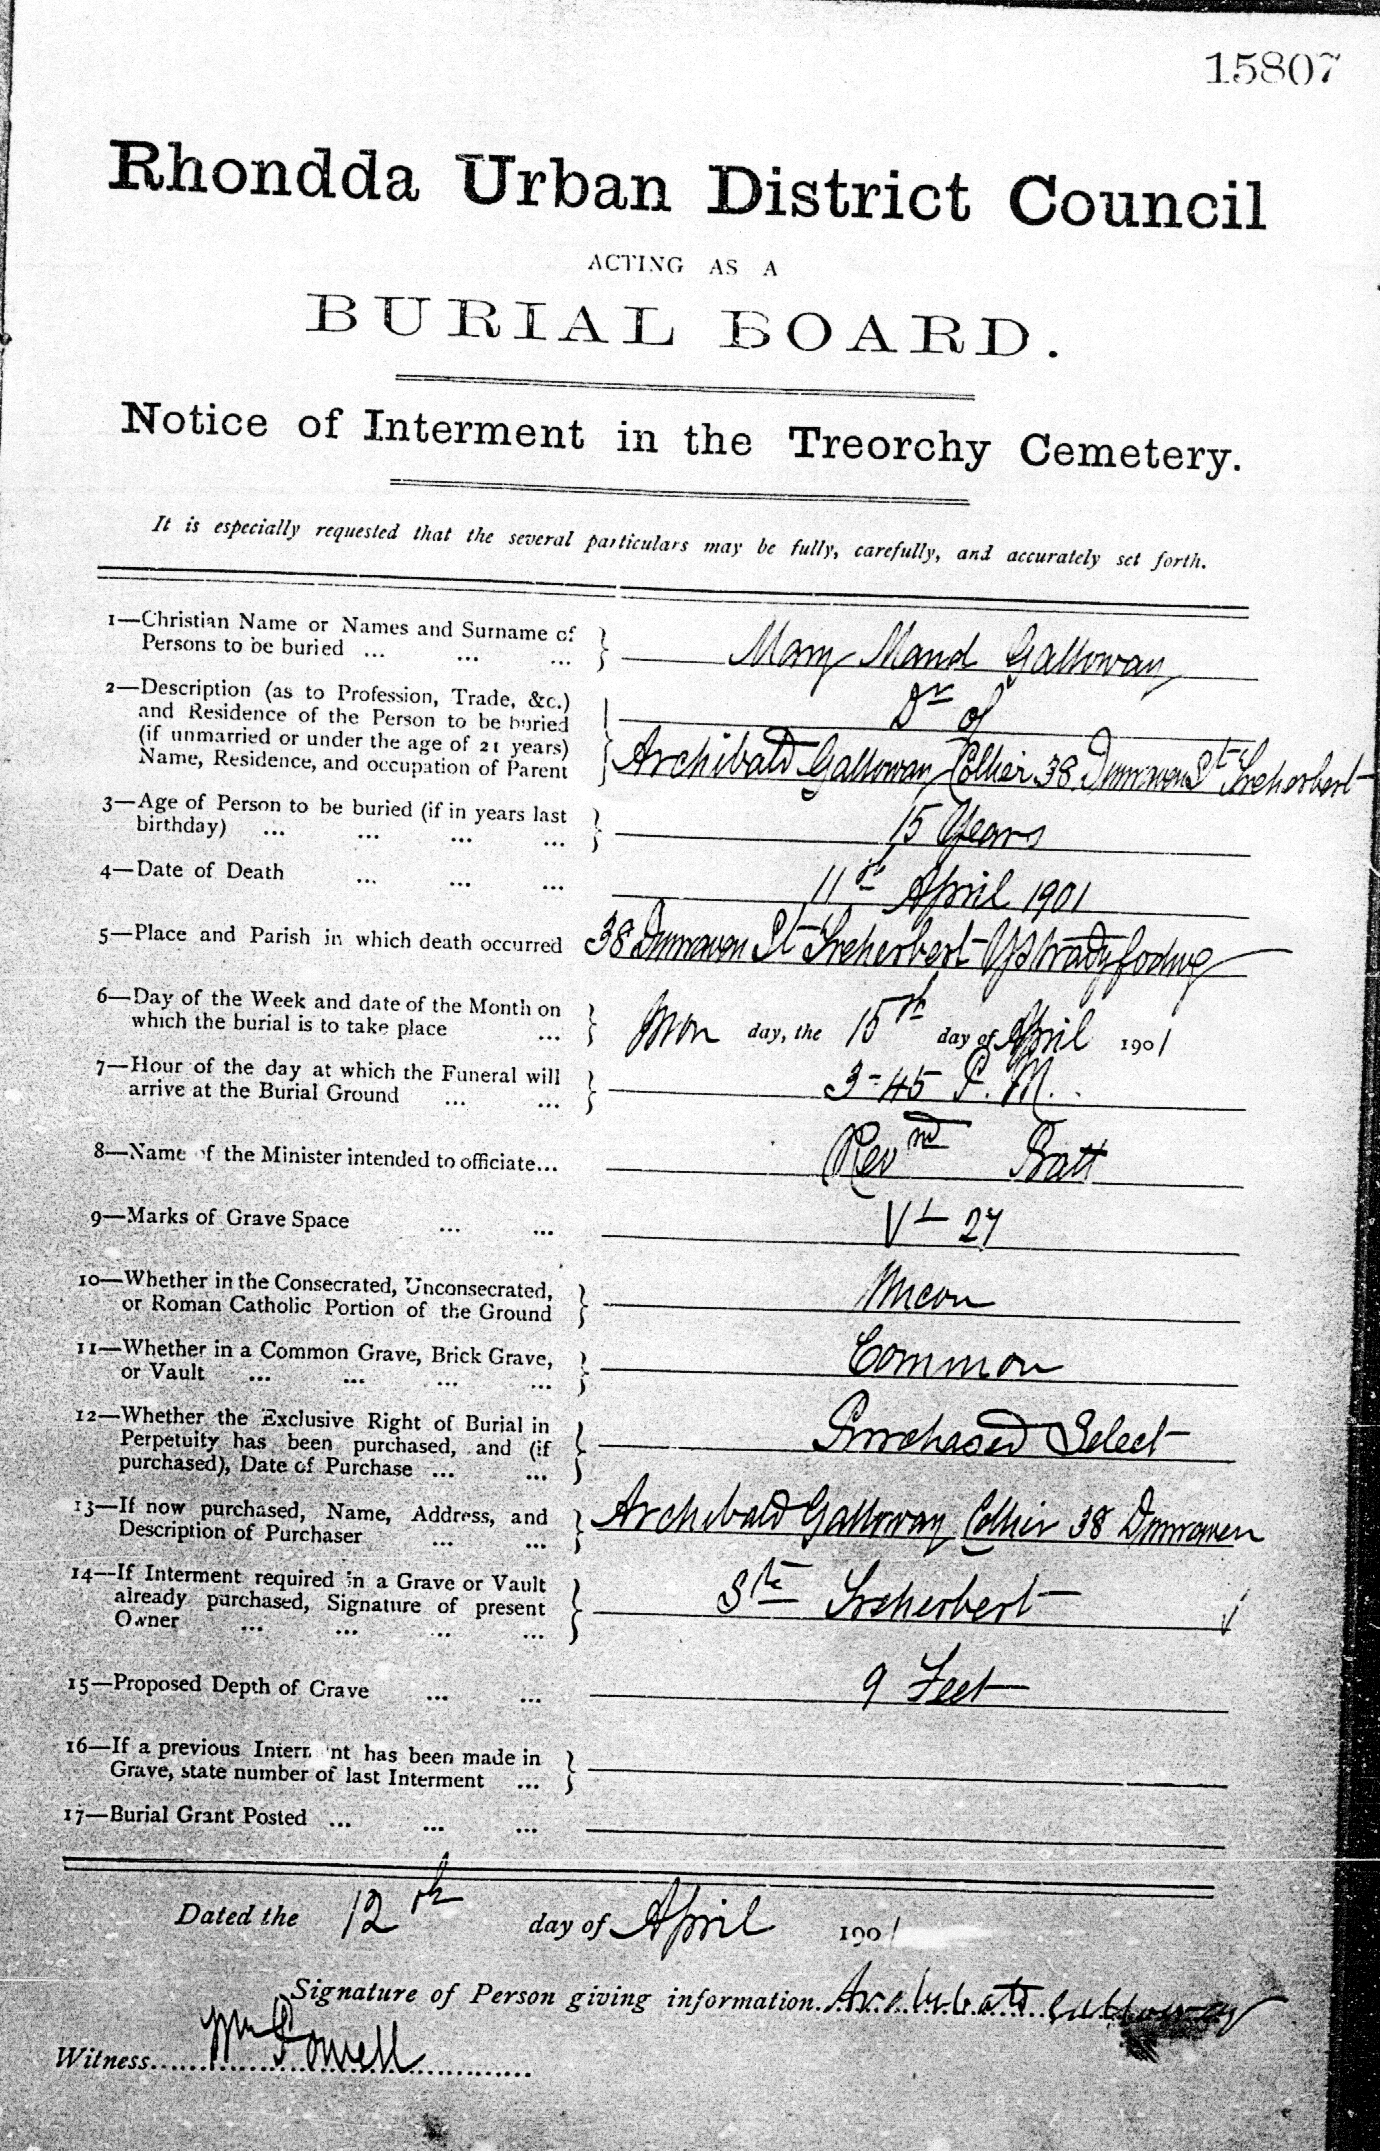 15807
Rhondda Urban District Council
ACTING AS A
BURIAL BOARD.
Notice of Interment in the Treorchy Cemetery.
It is especially requested that the several particulars may be fully, carefully, and accurately set forth.
1—Christian Name or Names and Surname of
Persons to be buried ... ... ...
Mary Maud Galloway
2—Description (as to Profession, Trade, &c.)
and Residence of the Person to be buried
(if unmarried or under the age of 21 years)
Name, Residence, and occupation of Parent
Dr of
Archibald Galloway Collier 38 Dunraven St Treherbert
3—Age of Person to be buried (if in years last
birthday) ... ... ... ...
15 Years
4—Date of Death ... ... ...
11th April 1901
5—Place and Parish in which death occurred
38 Dunraven St Treherbert Ystradyfodwg
6—Day of the Week and date of the Month on
which the burial is to take place ...
Mon day, the 15th day of April 1901
7—Hour of the day at which the Funeral will
arrive at the Burial Ground ... ...
3-45 P.M.
8—Name of the Minister intended to officiate...
Revnd Batt
9—Marks of Grave Space ... ...
V L 27
10—Whether in the Consecrated, Unconsecrated,
or Roman Catholic Portion of the Ground
Uncon
11—Whether in a Common Grave, Brick Grave,
or Vault ... ... ... ...
Common
12—Whether the Exclusive Right of Burial in
Perpetuity has been purchased, and (if
purchased), Date of Purchase ... ...
Purchased Select
13—If now purchased, Name, Address, and
Description of Purchaser ... ...
Archibald Galloway Collier 38 Dunraven
14—If Interment required in a Grave or Vault
already purchased, Signature of present
Owner ... ... ... ...
Sts Treherbert
15—Proposed Depth of Grave ... ...
9 Feet
16—If a previous Interment has been made in
Grave, state number of last Interment ...
17—Burial Grant Posted ... ... ...
Dated the 12th day of April 1901
Signature of Person giving information. Archibald Galloway
Witness Wm Powell